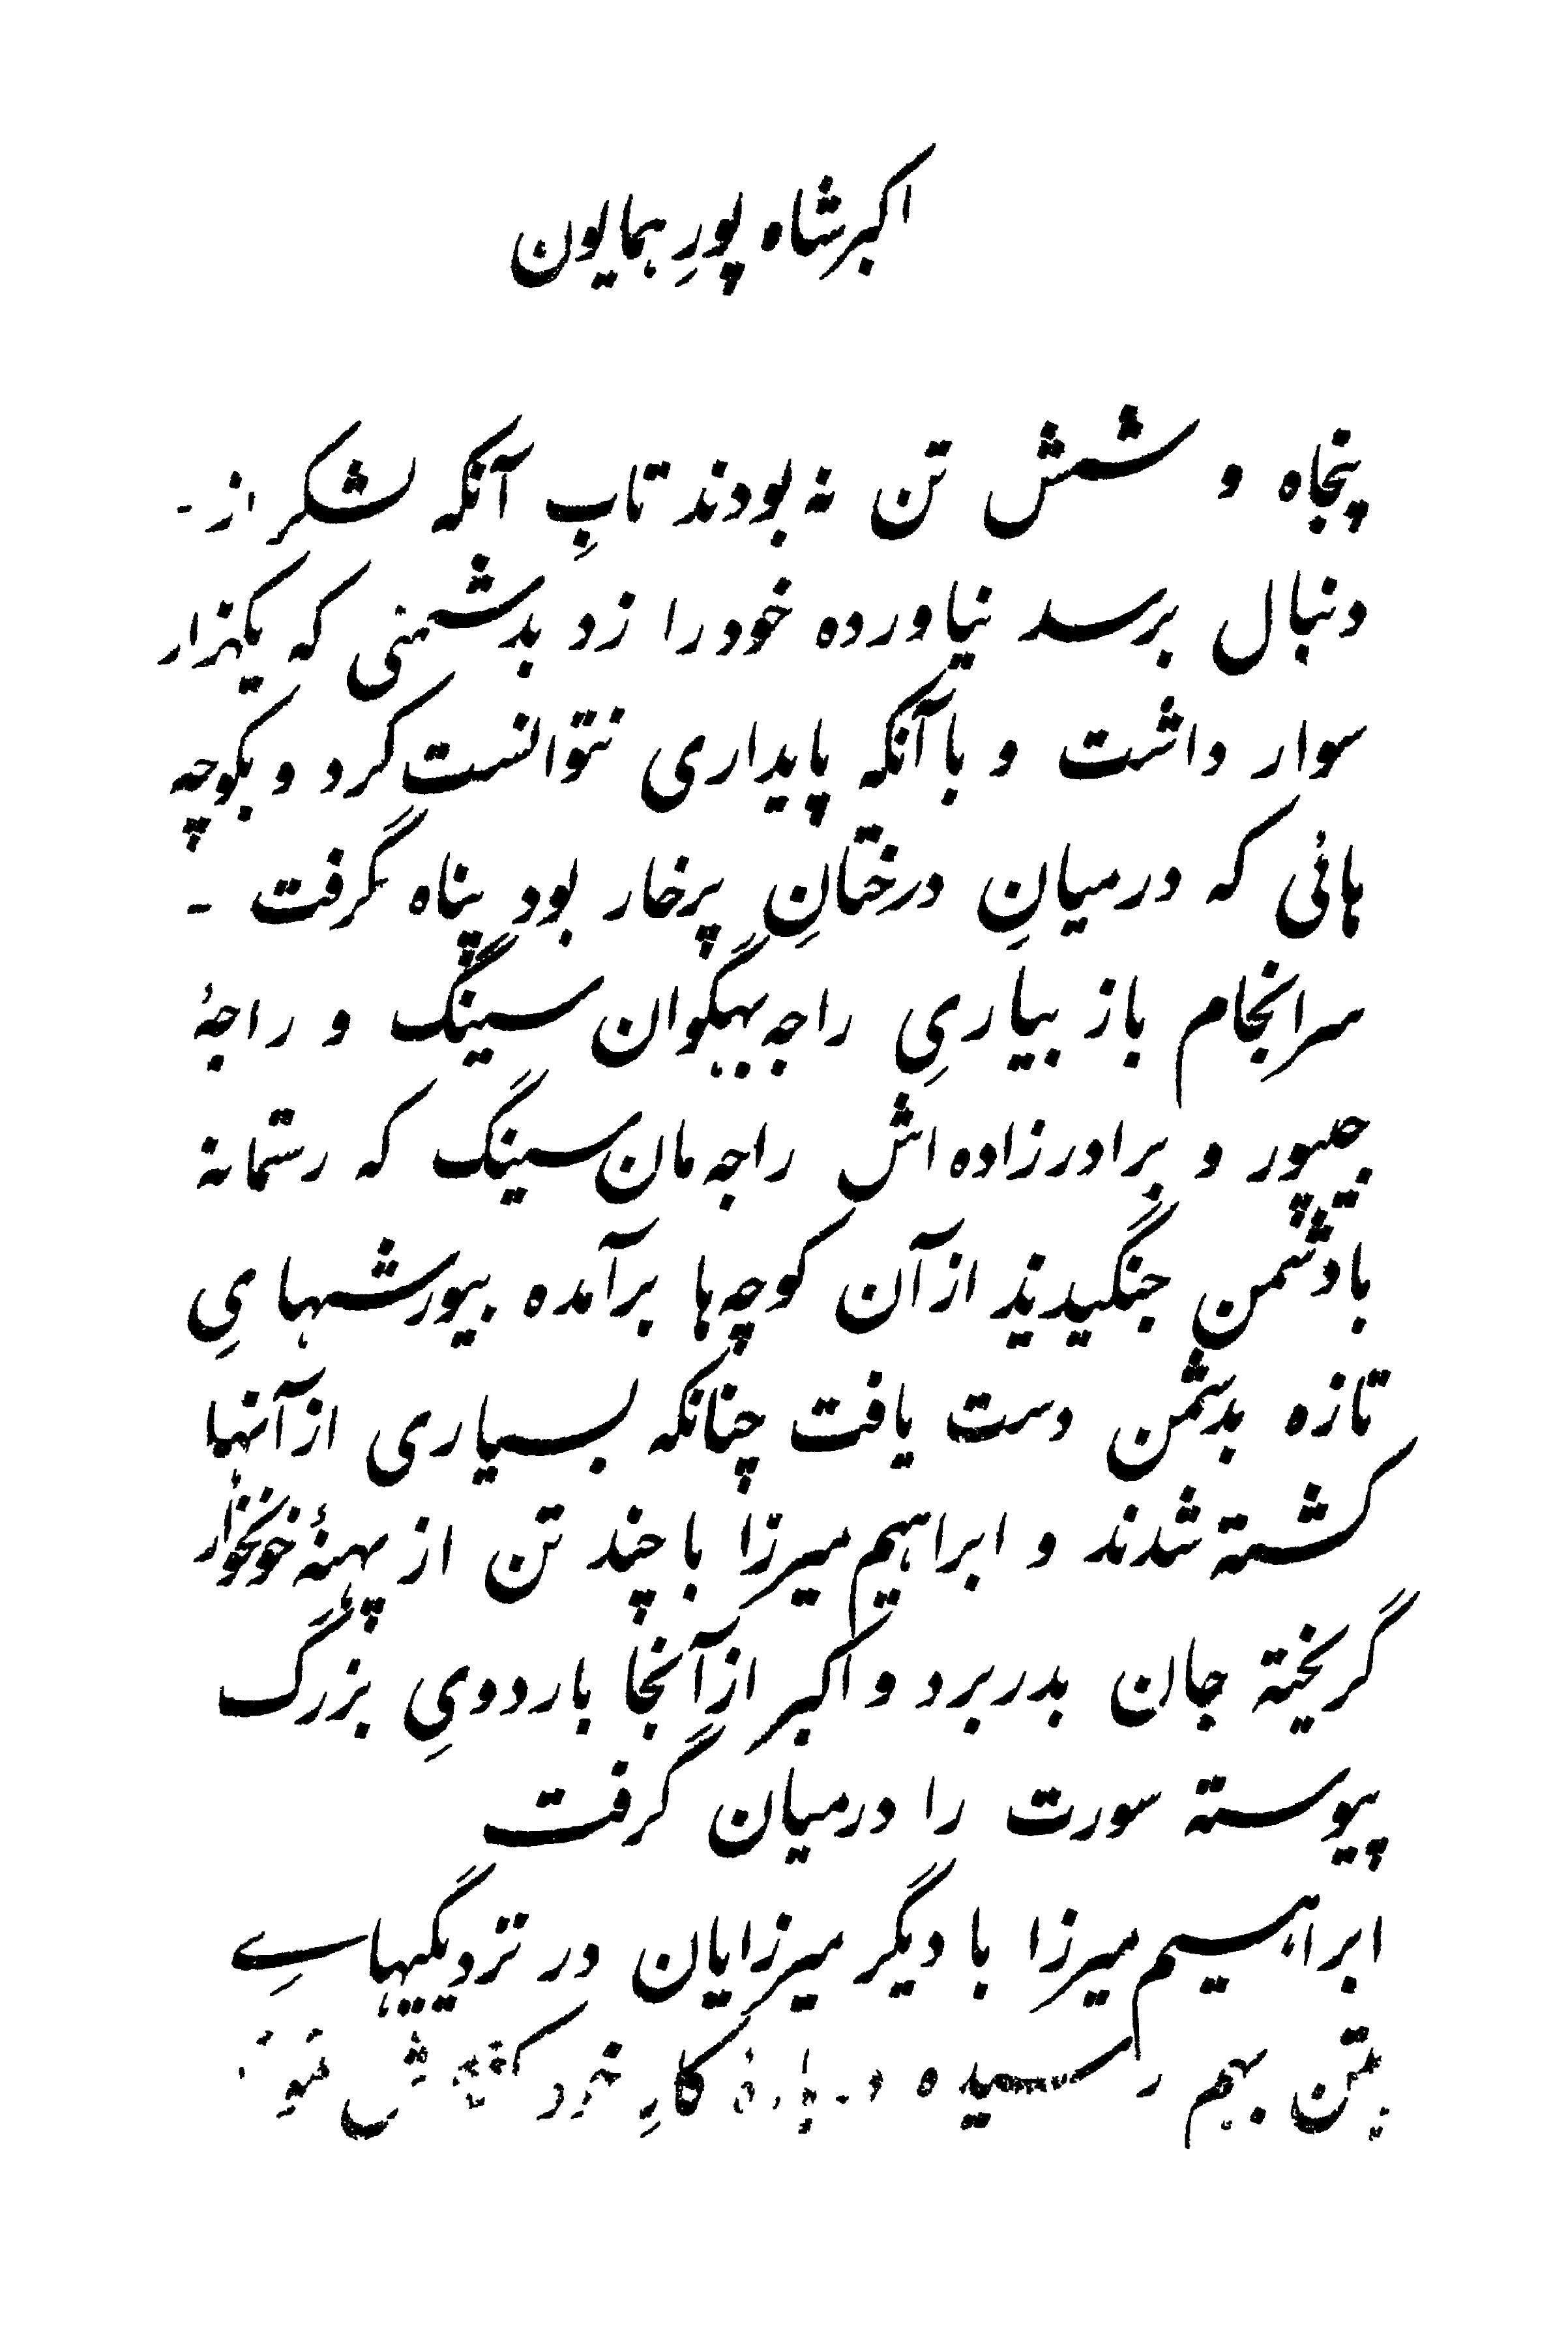 اکبر شاه پورِ همایون
پنجاه و شش تن نه بودند تابِ آنکه لشکر از -
دنبال برسد نیاورده خود را زد بدشمنی که یکهزار
سوار داشت و با آنکه پایداری نتوانست کرد و بکوچه
هائی که در میانِ درختانِ پرخار بود پناه گرفت -
سرانجام باز بیاریِ راجه بهگوان سینگ و راجهٔ
جیپور و برادرزاده اش راجه مان سینگ که رستمانه
با دشمن جنگیدند از آن کوچه ها برآمده بیورشهایِ
تازه بدشمن دست یافت چنانکه بسیاری از آنها
کشته شدند و ابراهیم میرزا با چند تن از پهنهٔ خونخوار
گریخته جان بدر برد و اکبر از آنجا باردویِ بزرگ
پیوسته سورت را درمیان گرفت
ابراهیم میرزا با دیگر میرزایان در نزدیکیهایِ
پتن بهم رسیده در بارهٔ کارِ خود